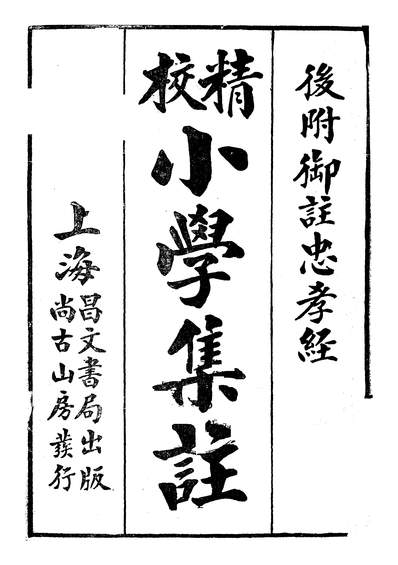 後附御註忠孝經
精校
小學集註
上海
昌文書局出版
尚古山房發行